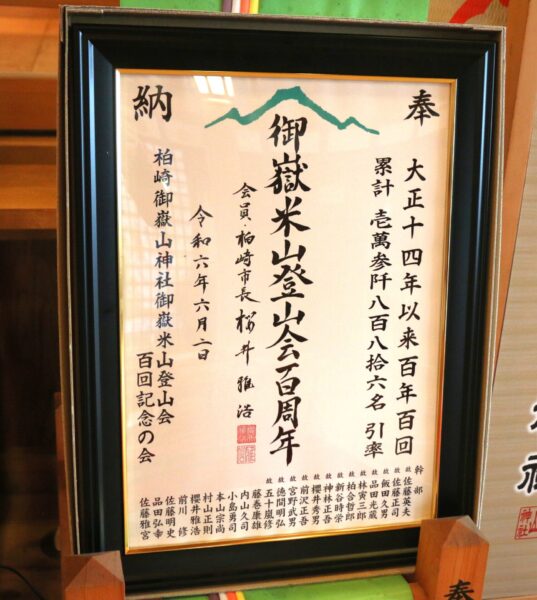 奉
納
大正十四年以来百年百回
累計 壱萬参阡八百八拾六名 引率
御嶽米山登山会百周年
会員・柏崎市長 桜井雅浩
令和六年六月二日
柏崎御嶽山神社御嶽米山登山会
百回記念の会
幹部
故 佐藤英夫
故 佐藤正司
故 飯田久男
故 品田光蔵
故 林寅三郎
故 柏合哲郎
故 新谷時栄
故 神林正吾
故 櫻井秀男
故 前沢正吾
故 宮野武男
故 徳間明弘
故 五十嵐修
藤巻康雄
内山久司
小島勇司
本山宗尚
村山正則
櫻井雅浩
前川修
佐藤明史
品田弘幸
佐藤雅宮
奉